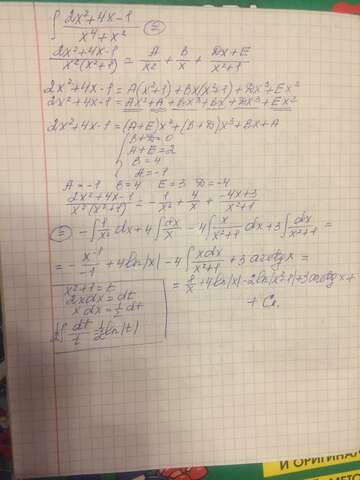 ∫ (2x²+4x-1)/(x⁴+x²) =
(2x²+4x-1)/(x²(x²+1)) = A/x² + B/x + (Dx+E)/(x²+1)
2x²+4x-1 = A(x²+1)+Bx(x²+1)+Dx³+Ex²
2x²+4x-1 = Ax²+A+Bx³+Bx+Dx³+Ex²
2x²+4x-1 = (A+E)x²+(B+D)x³+Bx+A
{ B+D=0
A+E=2
B=4
A=-1
A=-1 B=4 E=3 D=-4
(2x²+4x-1)/(x²(x²+1)) = -1/x² + 4/x + (-4x+3)/(x²+1)
= -∫1/x² dx+4∫dx/x - 4∫x/(x²+1) dx+3∫dx/(x²+1) =
= - x⁻¹/-1 +4ln|x| -4∫xdx/(x²+1) +3 arctgx =
x²+1=t
2xdx=dt
xdx=1/2 dt
1/2∫dt/t 1/2 ln|t|
= 1/x +4ln|x| -2ln|x²+1|+3arctgx+
+ C.
И ОРИГИНАЛ